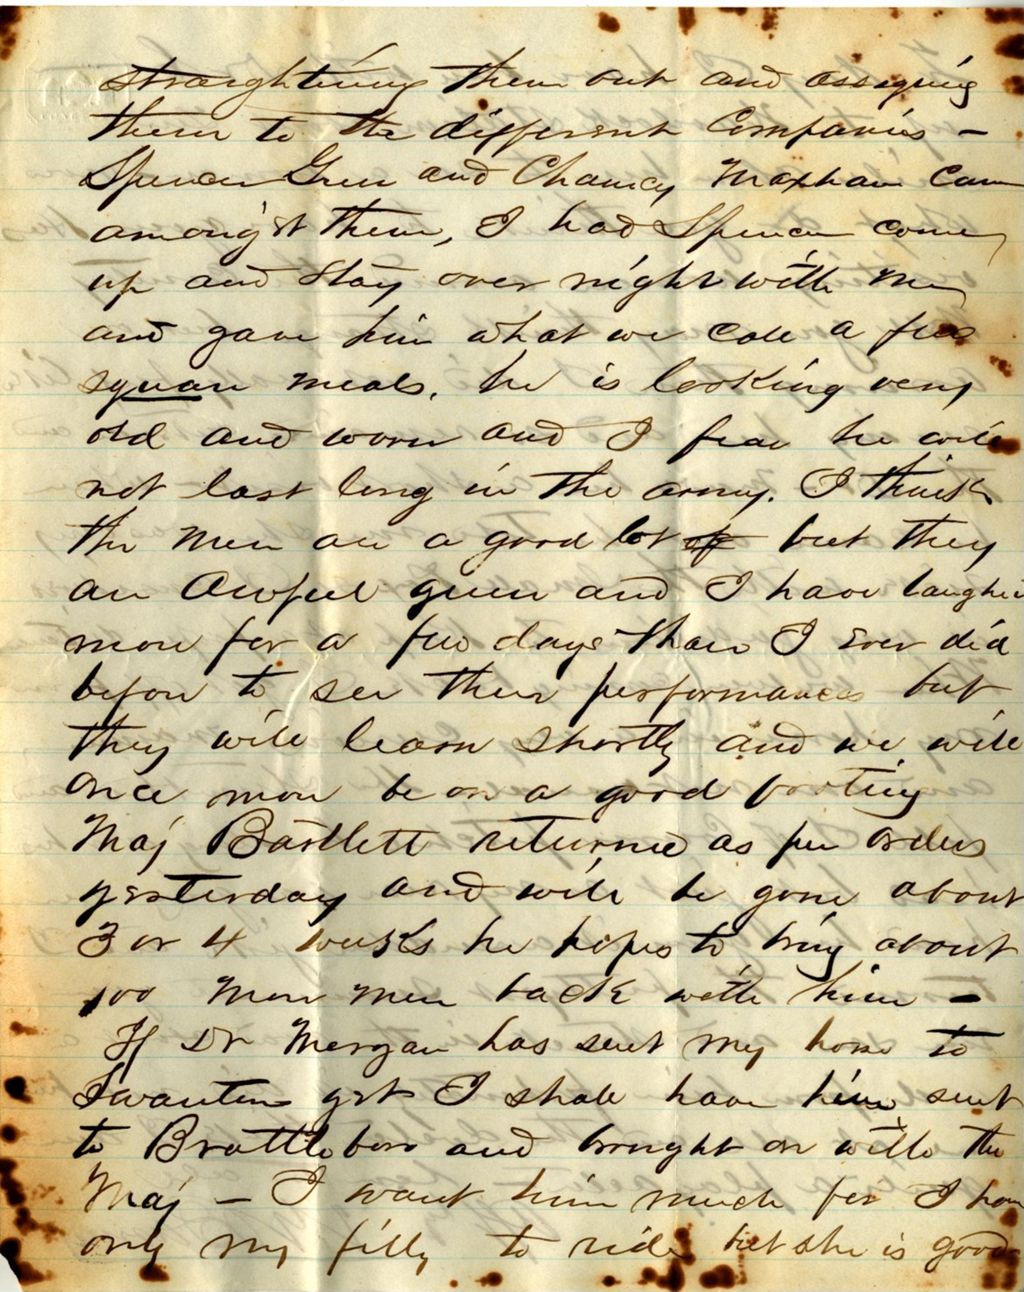 straightening them out and assigning
them to the different Companies -
Spencer Green and Chancy Maxham Came
amongst them, I had Spencer come
up and stay over night with me
and gave him what we cale a few
square meals. he is looking very
old and worn and I fear he will
not last long in the army. I think
the men are a good lot of but they
are Awful green and I have laughed
more for a few days than I ever did
before to see their performances but
they will learn shortly and we will
once more be on a good footing
Maj Bartlett returned as per orders
yesterday and will be gone about
3 or 4 weeks he hopes to bring about
100 More men back with him -
If Dr Morgan has sent my horse to
Swanton yet I shall have him sent
to Brattleboro and brought on with the
Maj - I want him much for I have
only my filly to ride but she is good